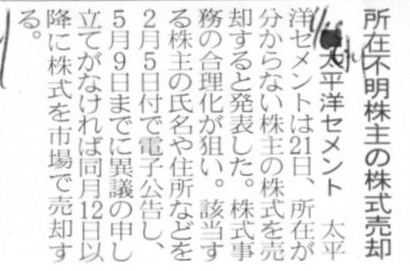 所在不明株主の株式売却
太平洋セメント 太平
洋セメントは21日、所在が
分からない株主の株式を売
却すると発表した。株式事
務の合理化が狙い。該当す
る株主の氏名や住所などを
2月5日付で電子公告し、
5月9日までに異議の申し
立てがなければ同月12日以
降に株式を市場で売却す
る。